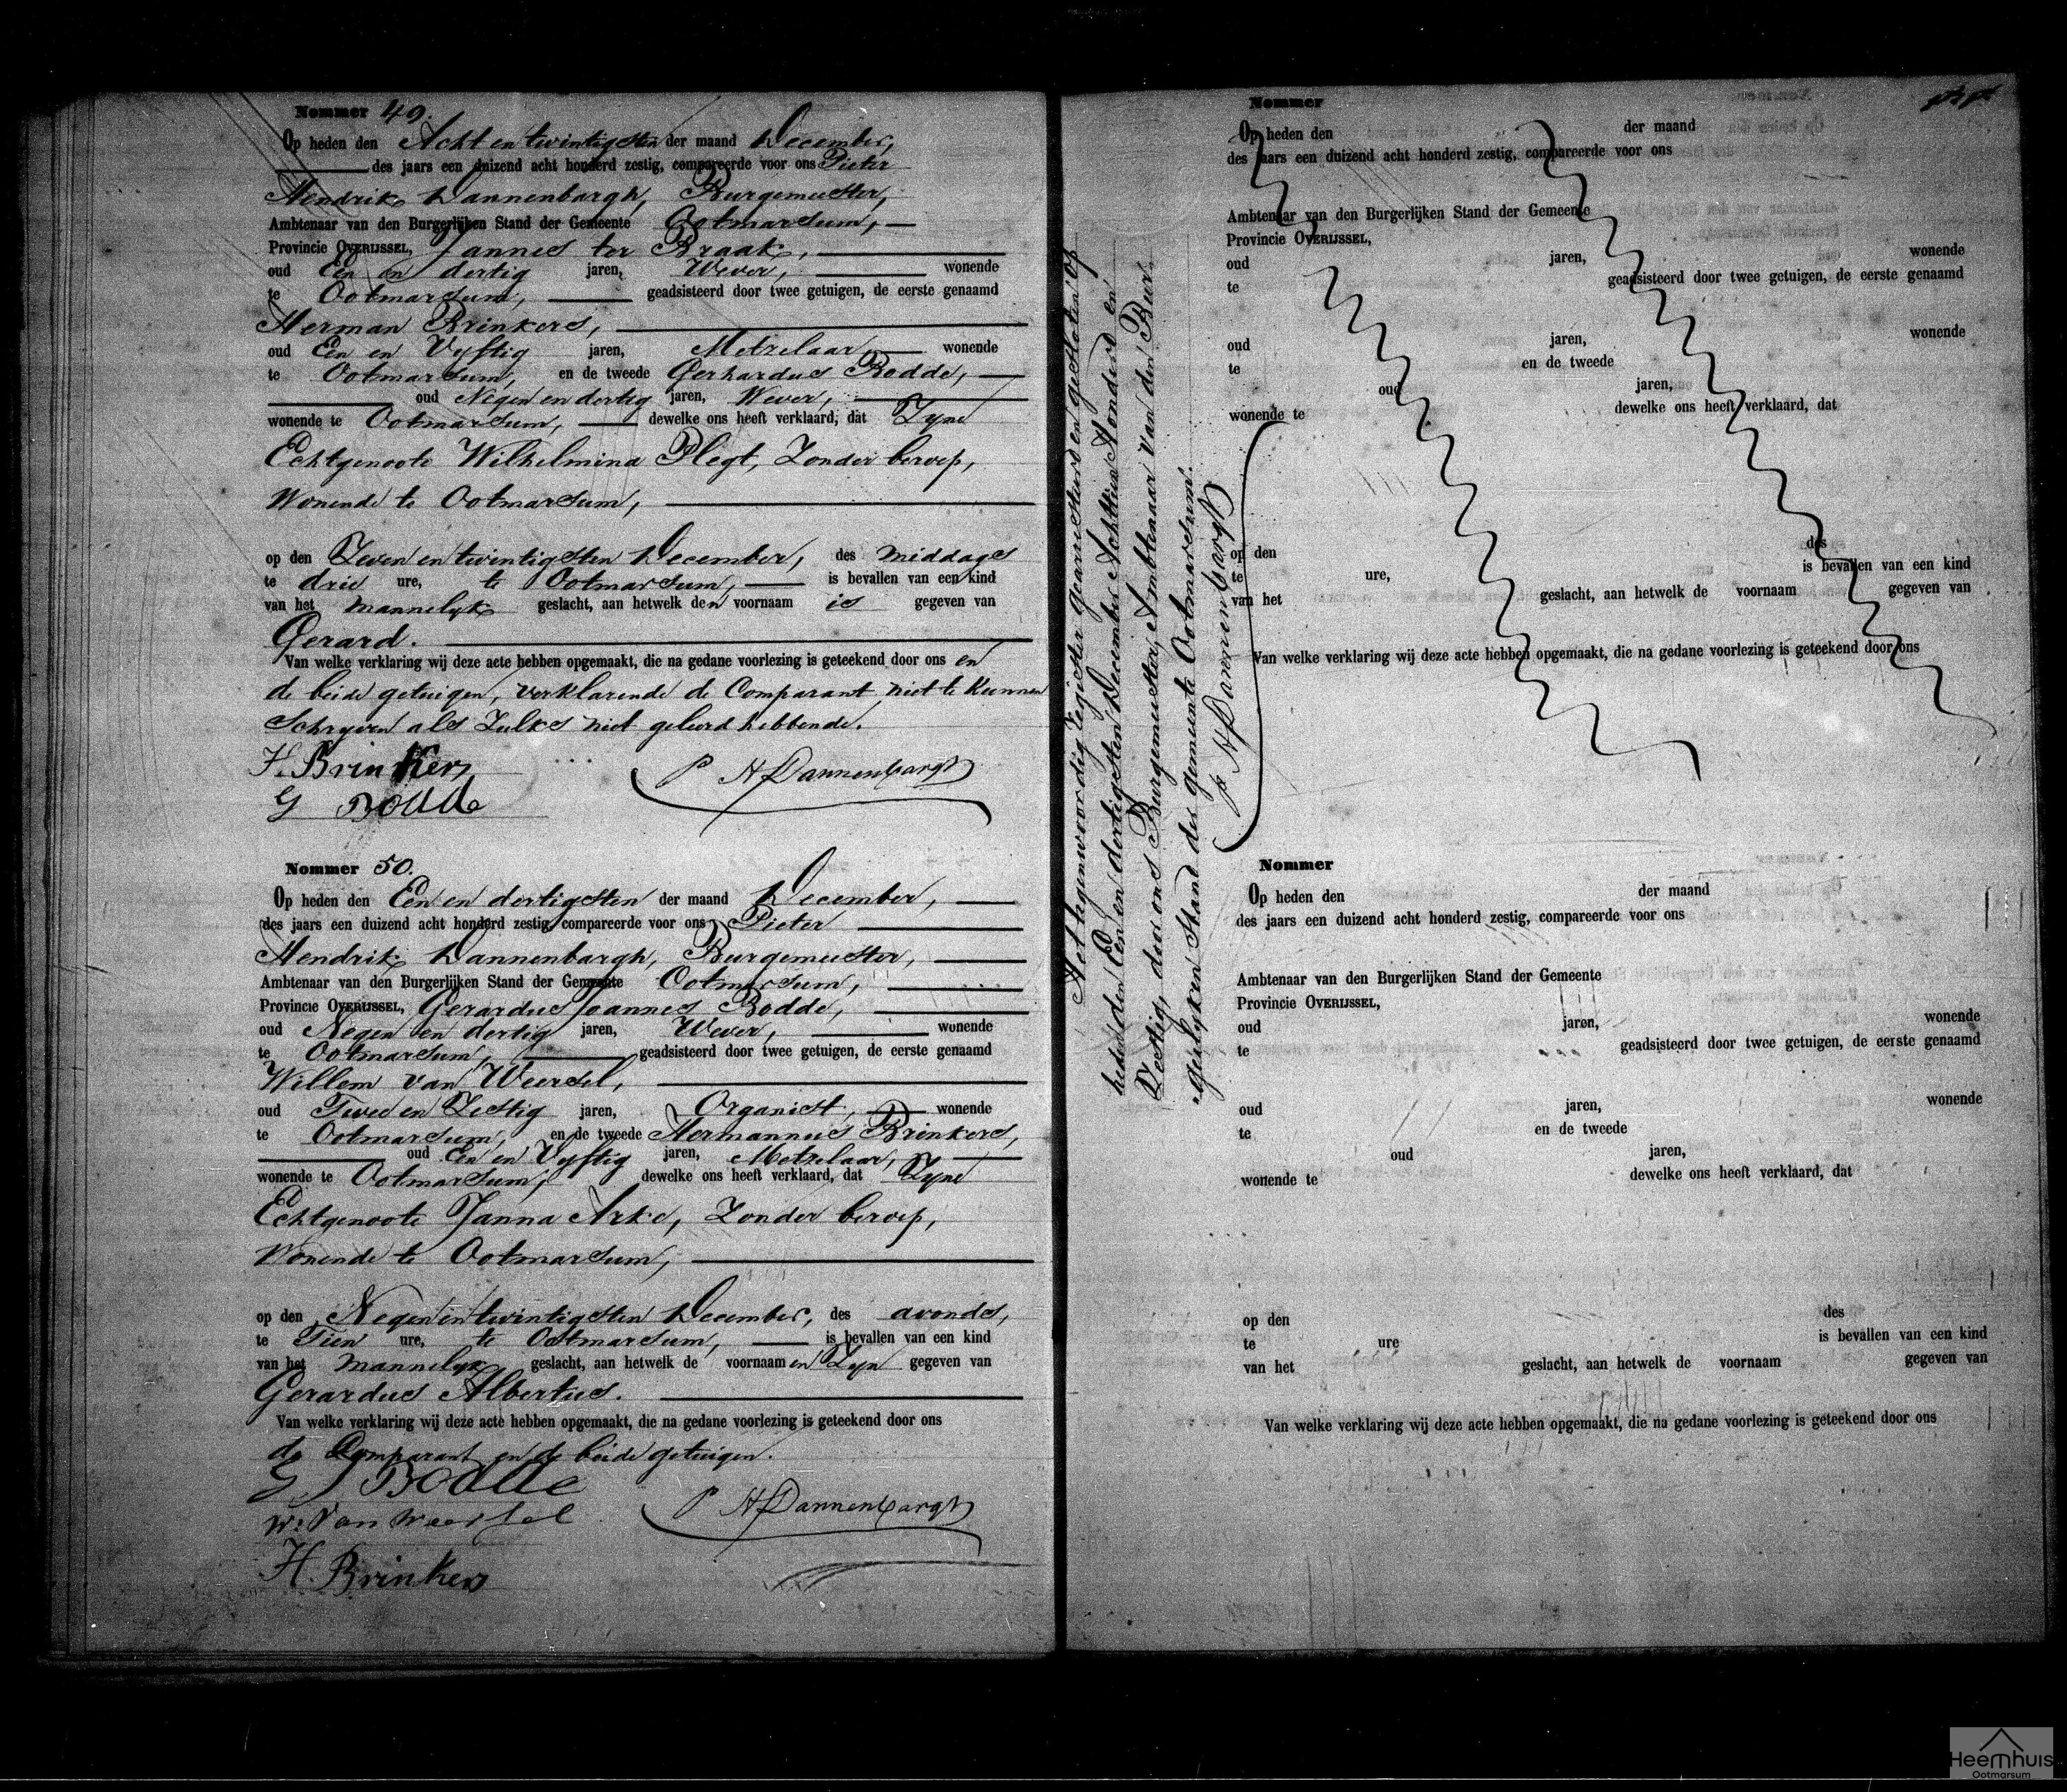 Nommer 49.
Op heden den Acht en twintigsten der maand December,
des jaars een duizend acht honderd zestig, compareerde voor ons Pieter
Hendrik Dannenbargh, Burgemeester,
Ambtenaar van den Burgerlijken Stand der Gemeente Ootmarsum,
Provincie OVERIJSSEL, Jannes ter Braak,
oud Een en dertig jaren, Wever, wonende
te Ootmarsum, geadsisteerd door twee getuigen, de eerste genaamd
Herman Brinkers,
oud Een en Vyftig jaren, Metzelaar, wonende
te Ootmarsum, en de tweede Gerhardus Bodde,
oud Negen en dertig jaren, Wever,
wonende te Ootmarsum, dewelke ons heeft verklaard, dat Zyne
Echtgenoote Wilhelmina Plegt, Zonder beroep,
Wonende te Ootmarsum,
op den Zeven en twintigsten December, des middags
te drie ure, te Ootmarsum, is bevallen van een kind
van het mannelyk geslacht, aan hetwelk den voornaam is gegeven van
Gerard.
Van welke verklaring wij deze acte hebben opgemaakt, die na gedane voorlezing is geteekend door ons en
de beide getuigen, verklarende de Comparant niet te kunnen
Schryven als Zulks niet geleerd hebbende.
H. Brinkers
P H Dannenbargh
G Bodde
Nommer 50.
Op heden den Een en dertigsten der maand December,
des jaars een duizend acht honderd zestig, compareerde voor ons Pieter
Hendrik Dannenbargh, Burgemeester,
Ambtenaar van den Burgerlijken Stand der Gemeente Ootmarsum,
Provincie OVERIJSSEL, Gerardus Joannes Bodde,
oud Negen en dertig jaren, Wever, wonende
te Ootmarsum, geadsisteerd door twee getuigen, de eerste genaamd
Willem van Weersel,
oud Twee en Zestig jaren, Organist, wonende
te Ootmarsum, en de tweede Hermannus Brinkers,
oud Een en Vyftig jaren, Metzelaar,
wonende te Ootmarsum, dewelke ons heeft verklaard, dat Zyne
Echtgenoote Janna Arke, Zonder beroep,
Wonende te Ootmarsum,
op den Negen en twintigsten December, des avonds,
te Tien ure, te Ootmarsum, is bevallen van een kind
van het mannelyk geslacht, aan hetwelk de voornaamen Zyn gegeven van
Gerardus Albertus.
Van welke verklaring wij deze acte hebben opgemaakt, die na gedane voorlezing is geteekend door ons
de Comparant en de beide getuigen.
G J Bodde
P H Dannenbargh
W. Van Weersel
H. Brinkers
Het tegenwoordig register gearresteerd en gesloten op
heden den Een en dertigsten December Achttien Honderd en
Zestig, door ons Burgemeester, Ambtenaar van den Bur-
gerlyken Stand des gemeente Ootmarsum.
P H Dannenbargh
Nommer
Op heden den der maand
des jaars een duizend acht honderd zestig, compareerde voor ons
Ambtenaar van den Burgerlijken Stand der Gemeente
Provincie OVERIJSSEL,
oud jaren, wonende
te geadsisteerd door twee getuigen, de eerste genaamd
oud jaren, wonende
te en de tweede
oud jaren,
wonende te dewelke ons heeft verklaard, dat
op den des
te ure, is bevallen van een kind
van het geslacht, aan hetwelk de voornaam gegeven van
Van welke verklaring wij deze acte hebben opgemaakt, die na gedane voorlezing is geteekend door ons
Nommer
Op heden den der maand
des jaars een duizend acht honderd zestig, compareerde voor ons
Ambtenaar van den Burgerlijken Stand der Gemeente
Provincie OVERIJSSEL,
oud jaren, wonende
te geadsisteerd door twee getuigen, de eerste genaamd
oud jaren, wonende
te en de tweede
oud jaren,
wonende te dewelke ons heeft verklaard, dat
op den des
te ure is bevallen van een kind
van het geslacht, aan hetwelk de voornaam gegeven van
Van welke verklaring wij deze acte hebben opgemaakt, die na gedane voorlezing is geteekend door ons
Heemhuis
Ootmarsum